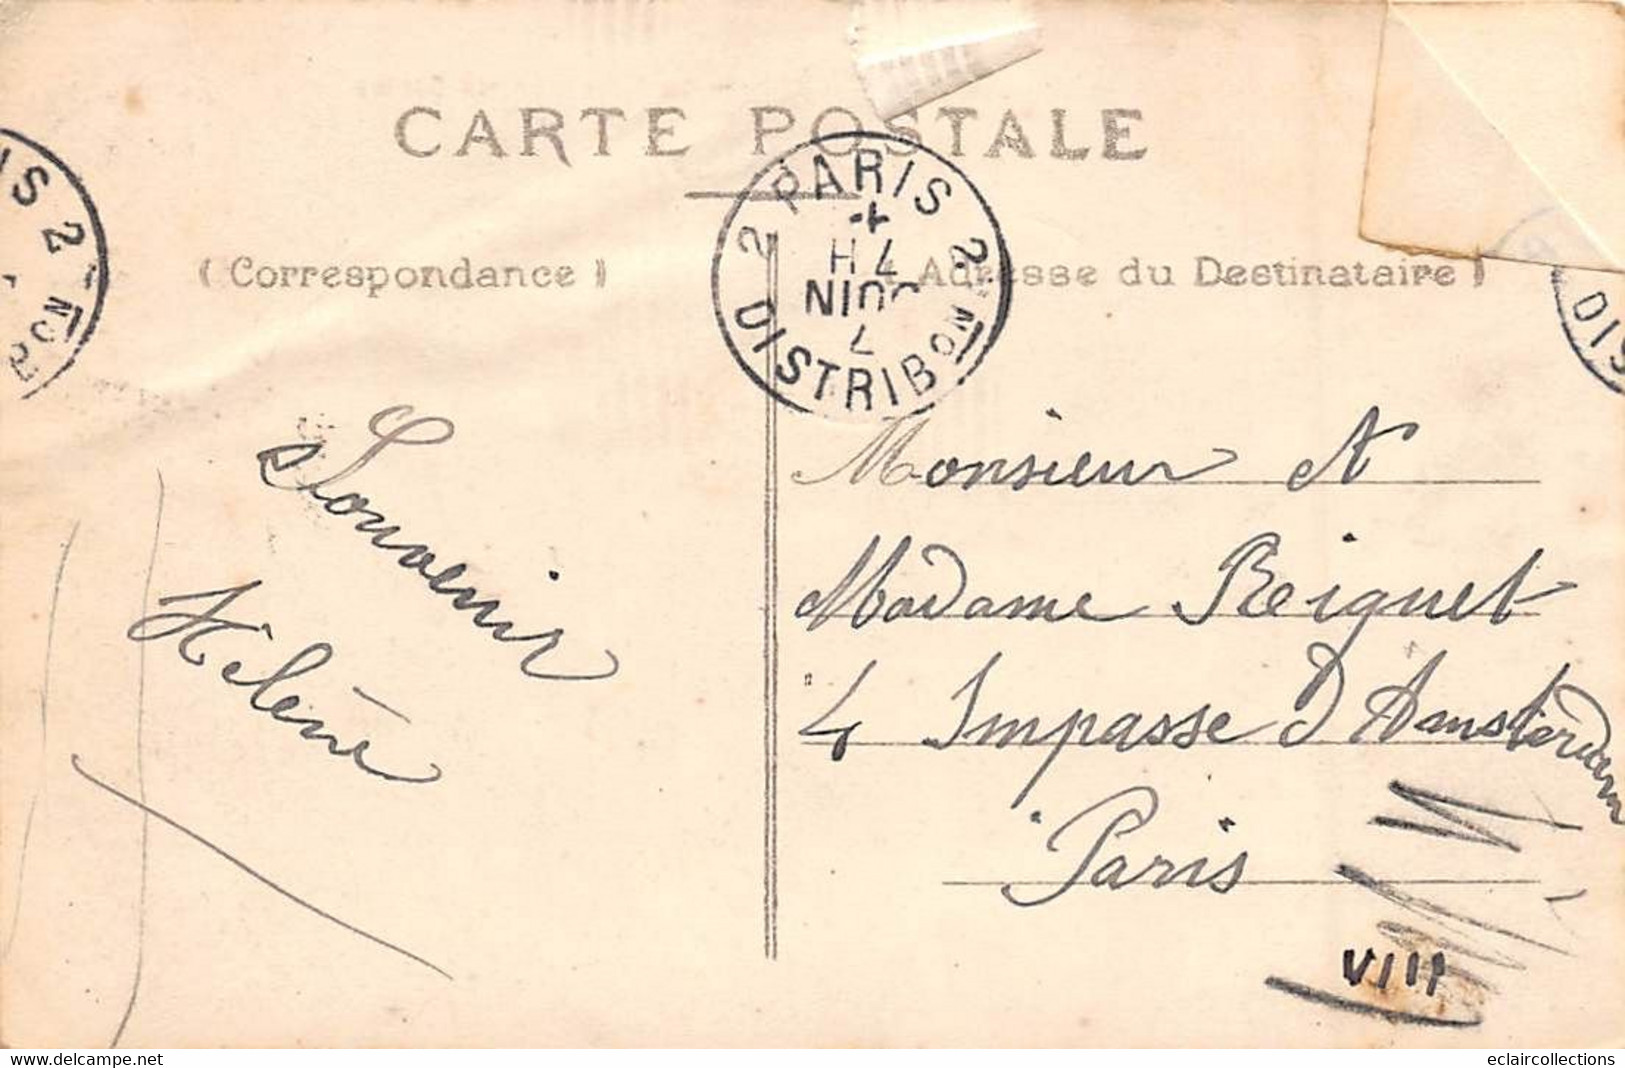 CARTE POSTALE
(Correspondance)
Adresse du Destinataire)
2 PARIS 2
7H
JUIN
7
DISTRIBON
IS 2
ON
DIS
Souvenir
Hélène
Monsieur et
Madame Reignet
4 Impasse D'Amsterdam
Paris
VIII
www.delcampe.net
eclaircollections